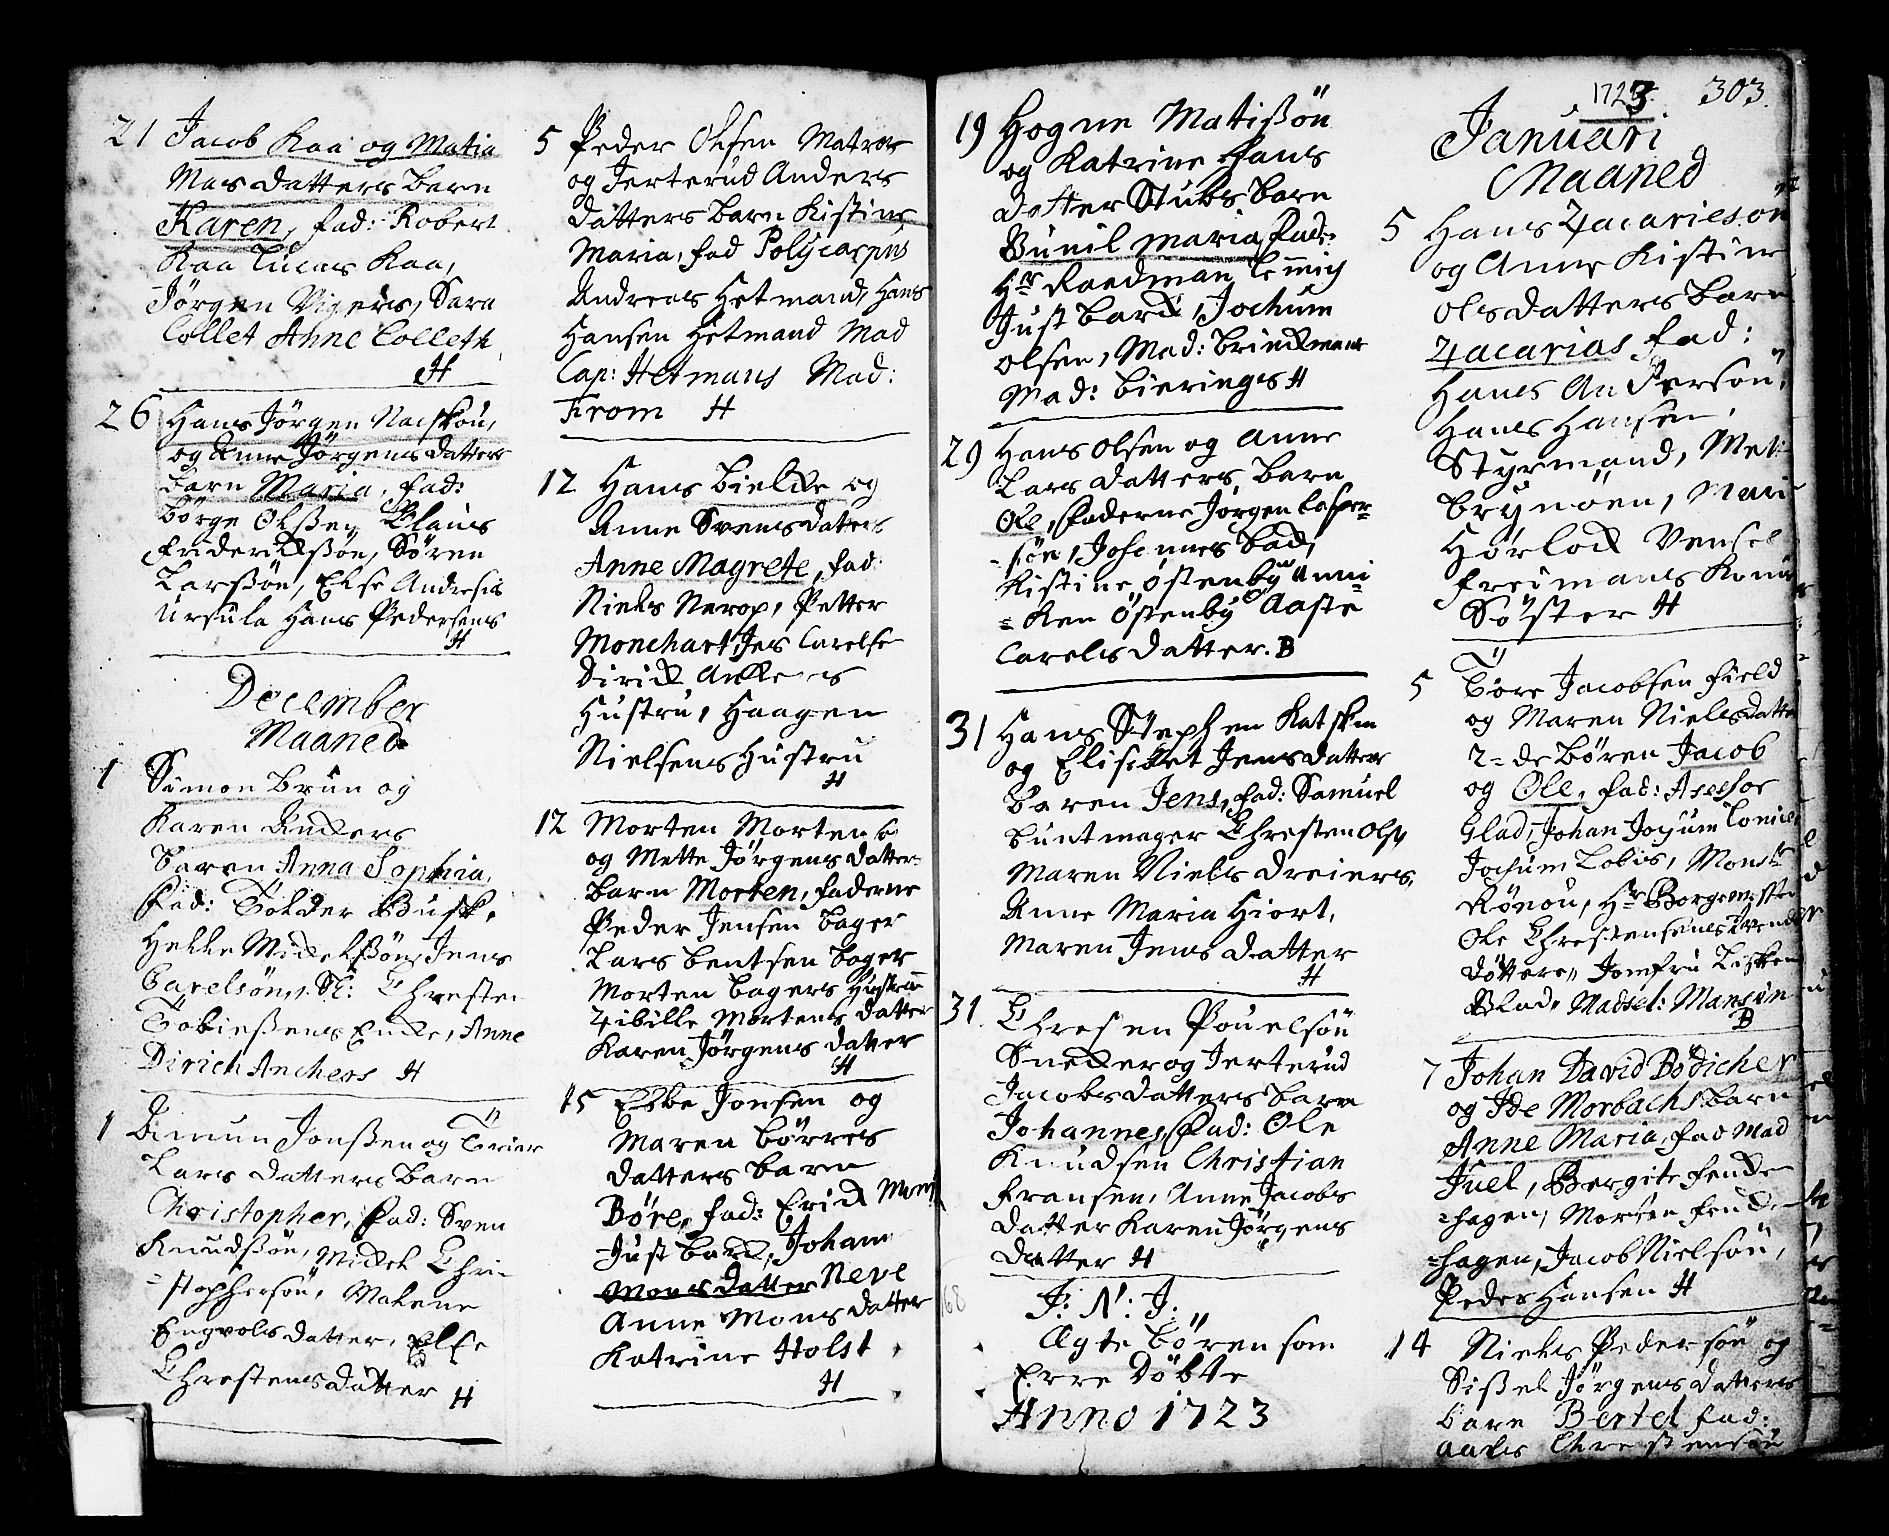 21 Jacob Kaa og Matia
Mas datters barn
Karen, fad: Robert
Kaa Lucas Kaa,
Jörgen Vigers, Sara
Collet Anne Colleth
H
26 Hans Jörgen Nacskou,
og Anne Jörgens datters
barn Maria, fad:
Börge Olssen Claus
Friderickssön, Sören
Larssön, Else Andreses
Ursula Hans Pedersens
H
December
Maaned
1 Simon Brun og
Karen Anders
Barn Anna Sophia,
fad: Tolder Busk,
Helle Mickelssön Jens
Carelsön, Sl: Chresten
Tobiessens Encke, Anne
Dirich Anchers H
1 Simun Jonssen og Trier
Lars datters barn
Christopher, fad: Sven
Knudssön, Mickel Chri-
=stophersön, Malene
Engvols datter, Else
Chrestens datter H
5 Peder Olsen Matros
og Jerterud Anders
datters barn Kistine
Maria, fad Polycarpus
Andreas Hetmand, Hans
Hansen Hetmand Mad
Cap: Hetmans Mad:
From H
12 Hans Bielcke og
Anne Svens datters
Anne Magrete, fad:
Niels Nerop, Petter
Monchart, Jes Carelse
Dirick Anckers
Hustru, Haagen
Nielsens Hustru
H
12 Morten Mortens
og Mette Jörgens datters
barn Morten, faderne
Peder Jensen bager
Lars bentsen bager
Morten bagers Hustrue
Zibille Mortens datter
Karen Jörgens datter
H
15 Ebbe Jonsen og
Maren Börres
datters barn
Böre, fad: Erick
Just barck, Johan
Mons datter Neve
Anne Mons datter
Katrine Holst
H
19 Hogne Matissön
og Katrine Hans
datter Stubs barn
Bunil Maria, fad:
Hr Raadman Lemmich
Just barck, Jochum
olsen, Mad: Brinckmans
Mad: Bierings H
29 Hans Olsen og Anne
Lars datters, barn
Ole, faderne Jörgen Casper=
=sön, Johannes bad,
Kistine Östenby Anni=
=ken Östenby Aaste
Carels datter. B
31 Hans Stephen Katsken
og Elisebet Jens datters
Baren Jens, fad: Samuel
buntmager Chresten Ols,
Maren Niels dreiers,
Anne Maria Hiort,
Maren Jens datter
H
31 Chresen Pouelsön
Snecker og Jerterud
Jacobs datters barn
Johannes, fad: Ole
Knudsen Christian
fransen, Anne Jacobs
datter Karen Jörgens
datter H
68
J: N: J:
Ægte bören som
Erre döbte
Anno 1723
1723. 303.
Januari
Maaned
5 Hans Zacariesön
og Anne Kistine
Ols datters barn
Zacarias fad:
Hans Anderson,
Hans Hansen,
Styrmand, Met:
Brynöen, Mari
Horlock Vensel
freimans Kone
Söster H
5 Tore Jacobsen Field
og Maren Niels datter
2=de bören Jacob
og Ole, fad: Asessor
Glad, Johan Jochum
Jochum Lobis, Mons:
Rönou, Hr Borgemester
Ole Chrestensens tvende
döttere, Jomfru Lisken
Blad, Madsel: Mansin
B
7 Johan David Bödicher
og Ide Morbachs barn
Anne Maria, fad Mad
Juel, Bergite fende
=hagen, Morten fend,
=hagen, Jacob Nielsön,
Peder Hansen H
14 Niels Pedersön og
Sissel Jörgens datters
barn Bertel fad: